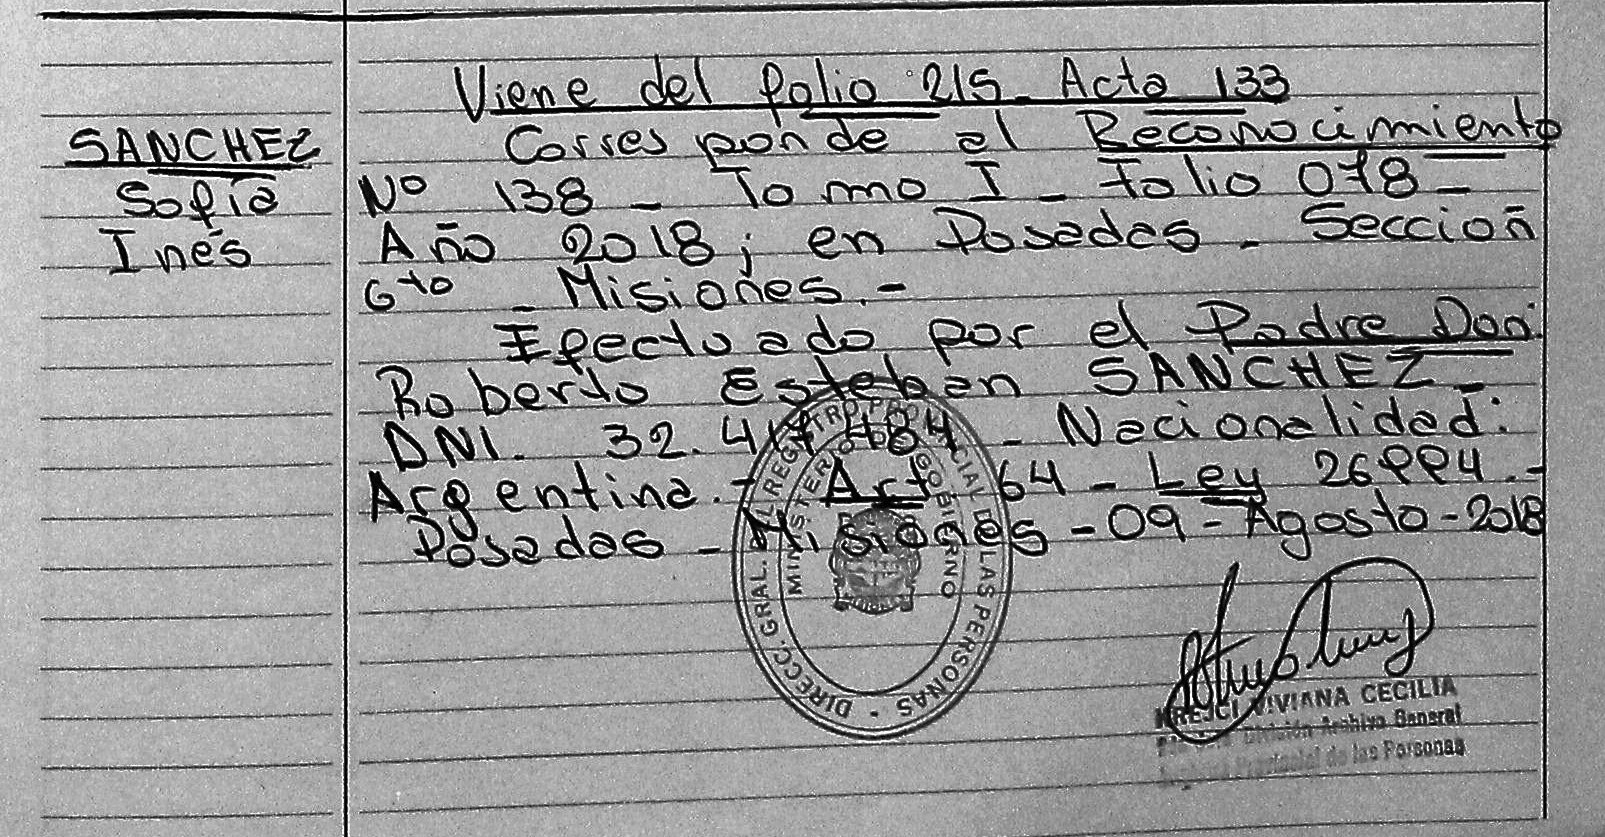 Viene del folio 215 - Acta 133
SANCHEZ
Sofía
Inés
Corresponde al Reconocimiento
Nº 138 - Tomo I - Folio 078 -
Año 2018; en Posadas - Sección
6ta - Misiones.-
Efectuado por el Padre Don:
Roberto Esteban SANCHEZ -
DNI. 32.417.484 - Nacionalidad:
Argentina.- Art 64 - Ley 26994.-
Posadas - Misiones - 09 - Agosto - 2018
DIRECC. GRAL. DEL REGISTRO PROVINCIAL DE LAS PERSONAS -
MINISTERIO DE GOBIERNO
KREJCI VIVIANA CECILIA
División Archivo General
Registro Provincial de las Personas